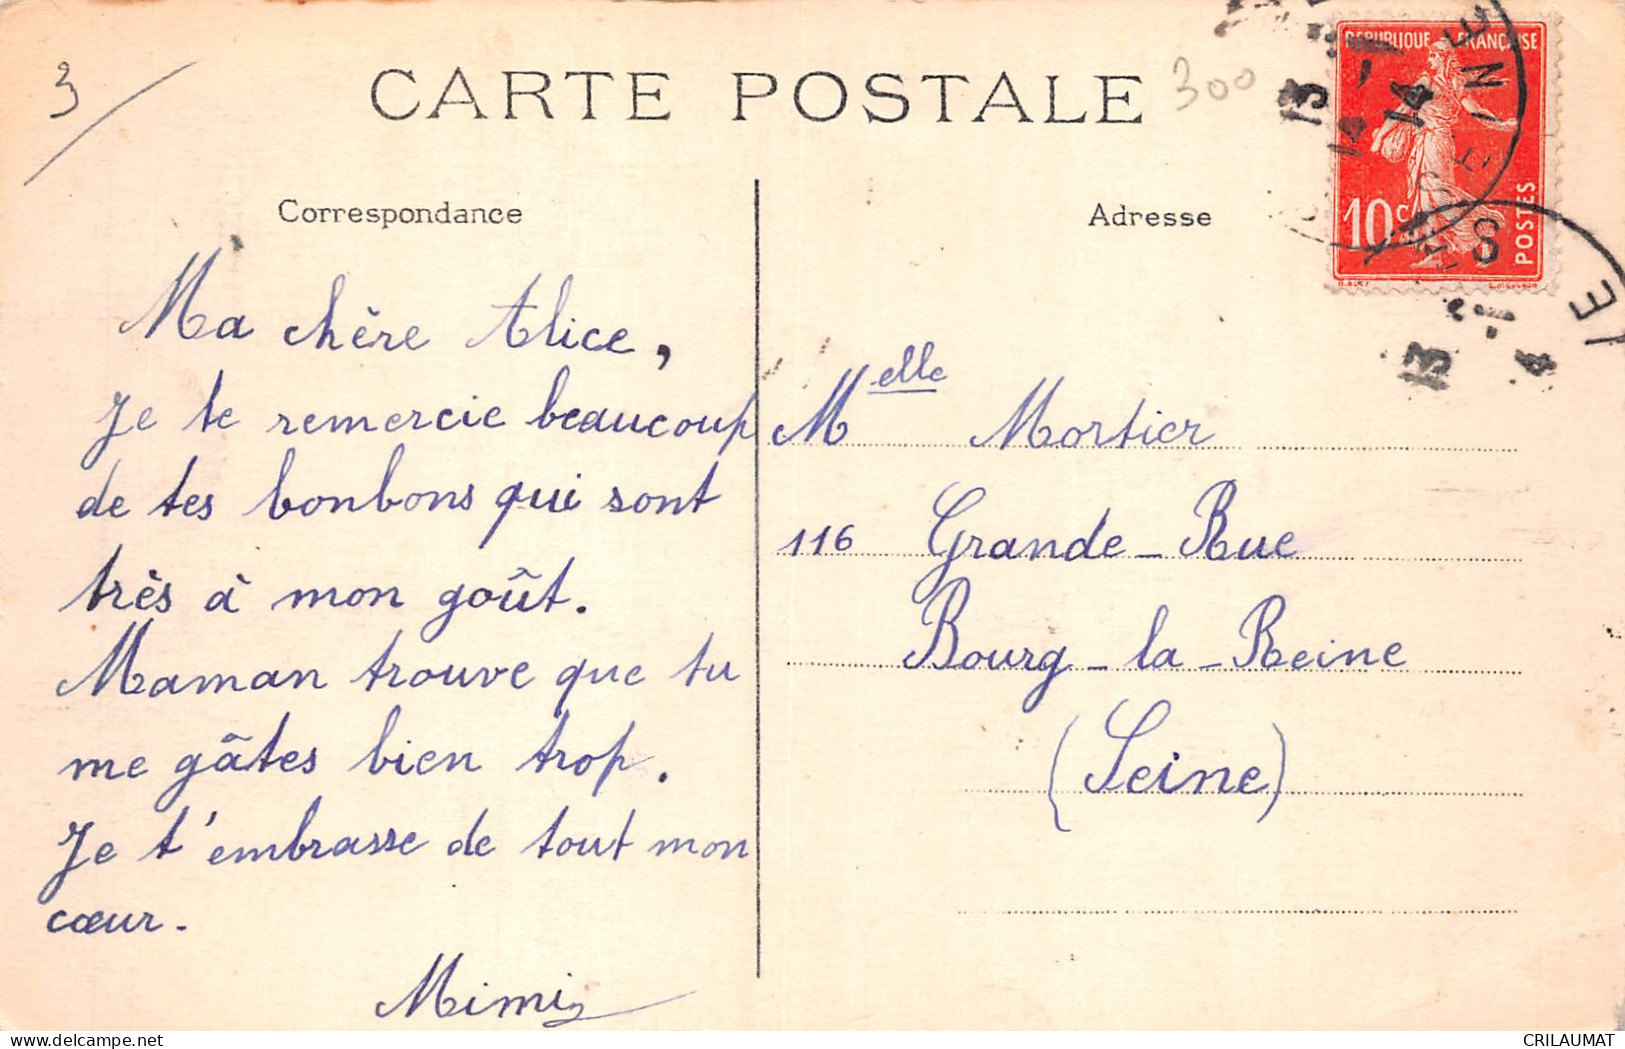 3
CARTE POSTALE
300
Correspondance
Ma chère Alice,
Je te remercie beaucoup
de tes bonbons qui sont
très à mon goût.
Maman trouve que tu
me gâtes bien trop.
Je t'embrasse de tout mon
cœur.
Mimi
Adresse
Melle Mortier
116 Grande-Rue
Bourg-la-Reine
(Seine)
REPUBLIQUE FRANÇAISE
10c
POSTES
13
14
14
SEINE
13
4
delcampe.net
CRILAUMAT